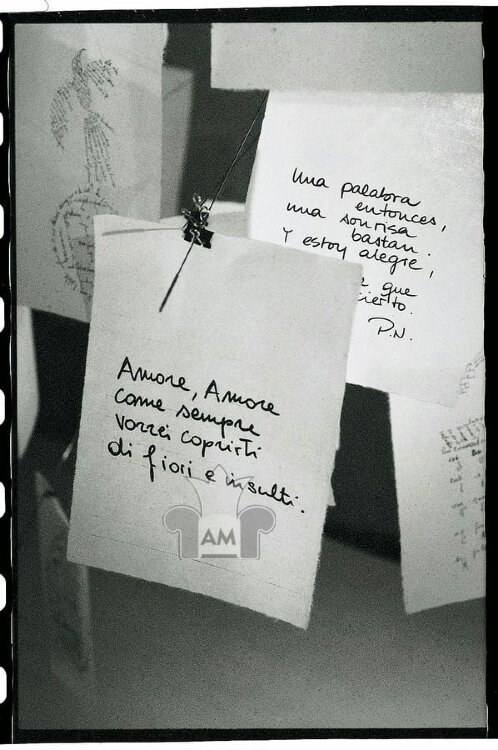 Una palabra
entonces,
una sonrisa
bastan.
Y estoy alegre,
que
P.N.
Amore, Amore
come sempre
vorrei coprirti
di fiori e insulti.
AM